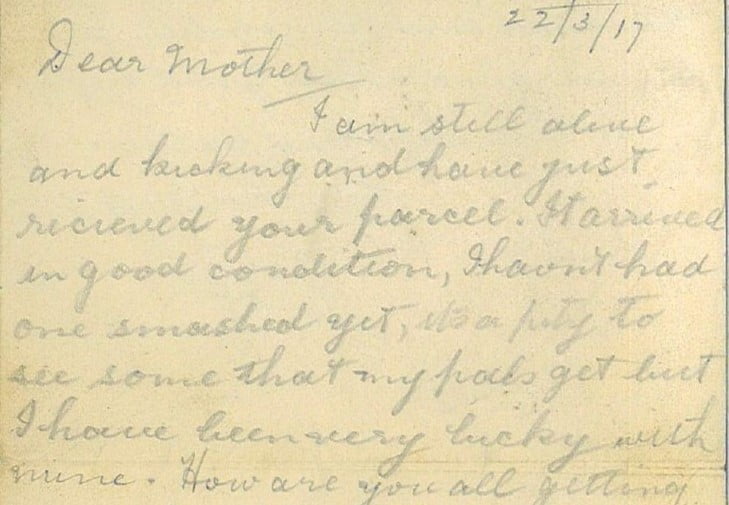 22/3/17
Dear Mother
I am still alive
and kicking and have just
recieved your parcel. It arrived
in good condition, I havn't had
one smashed yet, its a pity to
see some that my pals get but
I have been very lucky with
mine. How are you all getting